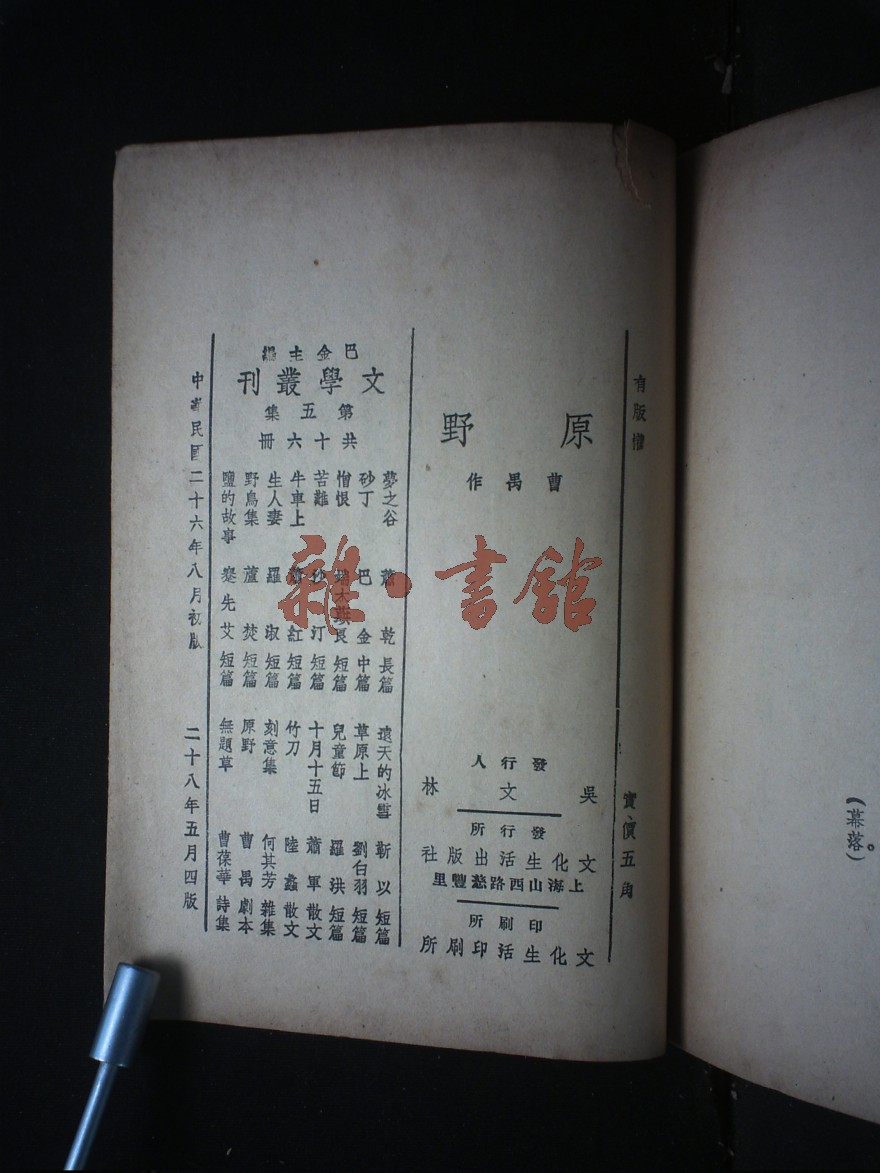 。
(幕落)
有版權
實價五角
原野
曹禺作
發行人
吳文林
發行所
文化生活出版社
上海山西路慈豐里
印刷所
文化生活印刷所
巴金主編
文學叢刊
第五集
共十六冊
夢之谷 蕭乾 長篇
砂丁 巴金 中篇
憎恨 端木蕻良 短篇
苦難 沙汀 短篇
牛車上 蕭紅 短篇
生人妻 羅淑 短篇
野鳥集 蘆焚 短篇
鹽的故事 蹇先艾 短篇
遠天的冰雪 靳以 短篇
草原上 劉白羽 短篇
兒童節 羅洪 短篇
十月十五日 蕭軍 散文
竹刀 陸蠡 散文
刻意集 何其芳 雜集
原野 曹禺 劇本
無題草 曹葆華 詩集
中華民國二十六年八月初版 二十八年五月四版
雜·書館